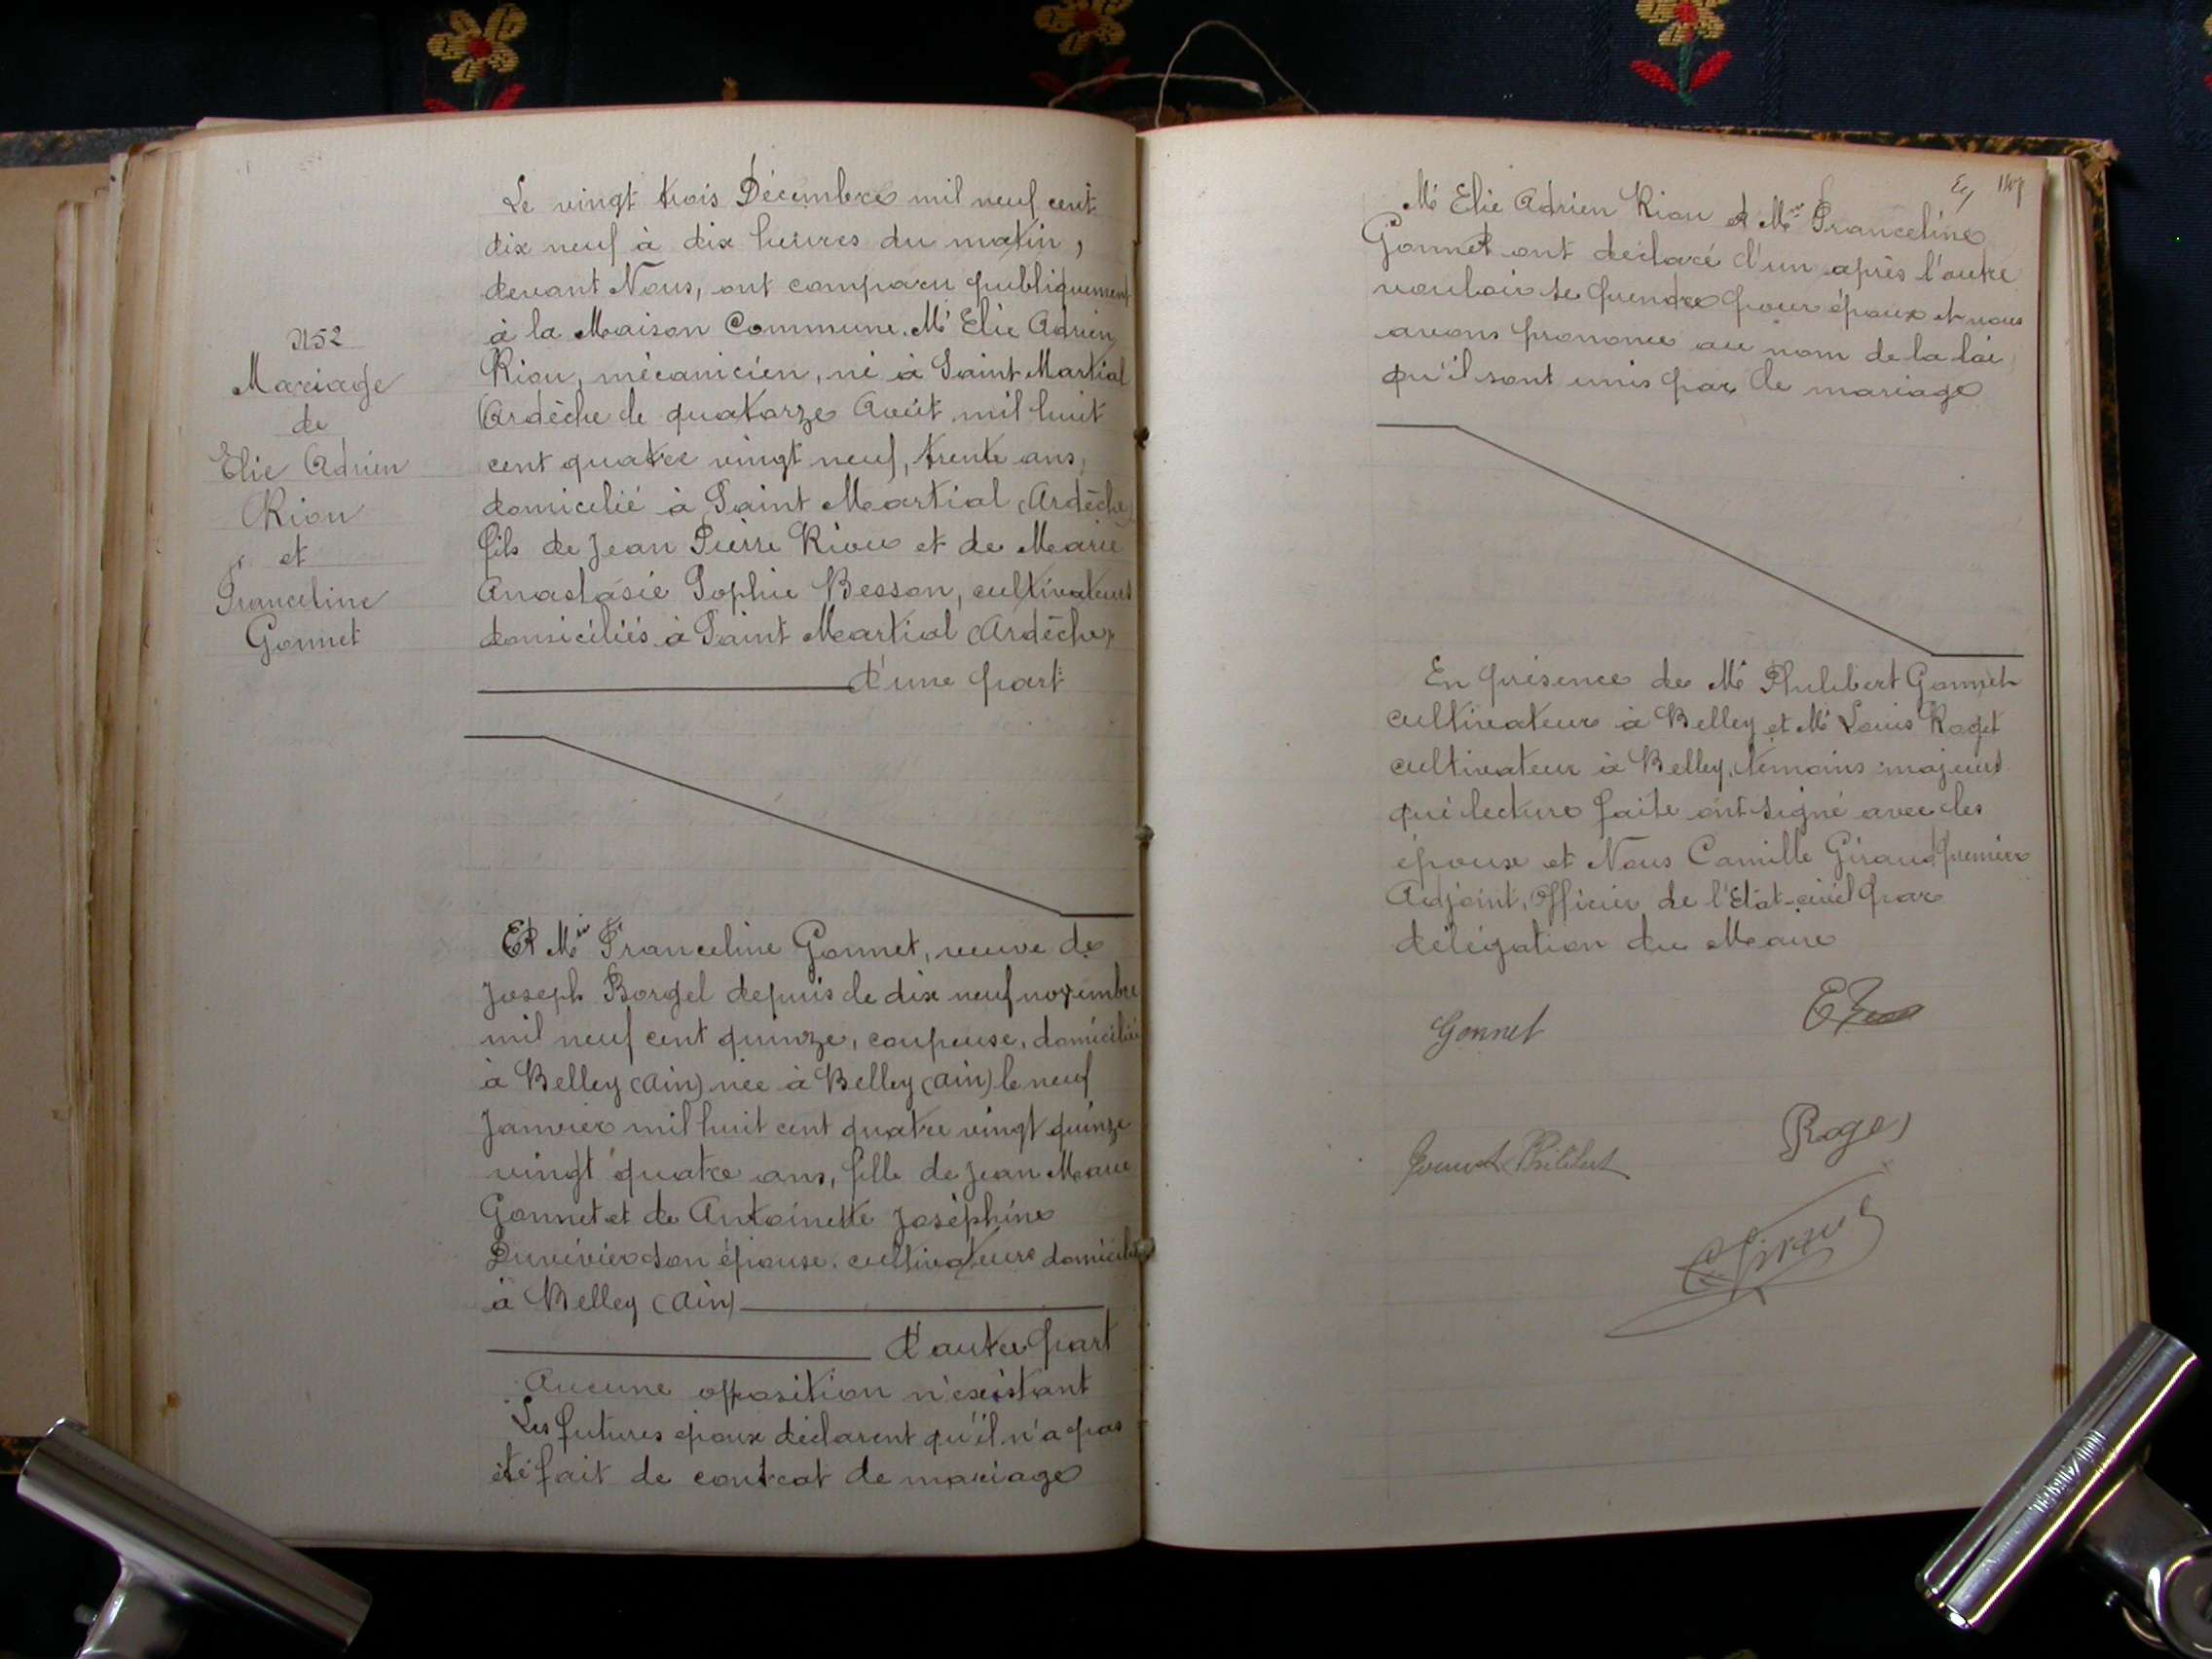 N 52
Mariage
de
Elie Adrien
Riou
et
Franceline
Gonnet
Le vingt trois Décembre mil neuf cent
dix neuf à dix heures du matin,
devant Nous, ont comparu publiquement
à la Maison Commune. Mr Elie Adrien
Riou, mécanicien, né à Saint Martial
(Ardèche le quatorze Août mil huit
cent quatre vingt neuf, trente ans,
domicilié à Saint Martial (Ardèche)
fils de Jean Pierre Riou et de Marie
Anastasie Sophie Besson, cultivateurs
domiciliés à Saint Martial (Ardèche)
d'une part
Et Mme Franceline Gonnet, veuve de
Joseph Borgel depuis le dix neuf novembre
mil neuf cent quinze, coupeuse, domiciliée
à Belley (Ain) née à Belley (Ain) le neuf
Janvier mil huit cent quatre vingt quinze
vingt quatre ans, fille de Jean Marie
Gonnet et de Antoinette Joséphine
Duvivier son épouse. cultivateurs domiciliés
à Belley (Ain)
d'autre part
Aucune opposition n'existant
Les futures époux déclarent qu'il n'a pas
été fait de contrat de mariage
Mr Elie Adrien Riou et Mme Franceline
Gonnet ont déclaré l'un après l'autre
vouloir se prendre pour époux et nous
avons prononcé au nom de la loi
qu'il sont unis par le mariage
En présence de Mr Philibert Gonnet
cultivateur à Belley et Mr Louis Roget
cultivateur à Belley, témoins majeurs
qui lecture faite ont signé avec les
époux et Nous Camille Giraud premier
Adjoint, Officier de l'Etat-civil par
délégation du Maire
Gonnet
Gonnet Philibert
Roget
C Giraud